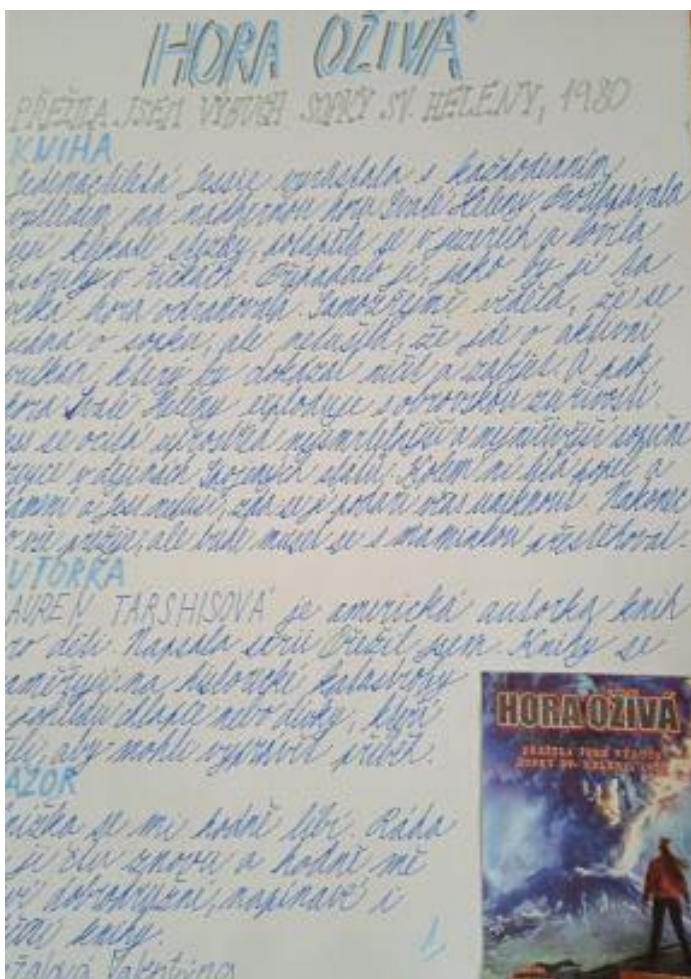 HORA OŽÍVÁ
PŘEŽILA JSEM VÝBUCH SOPKY SV. HELENY, 1980
KNIHA
Jedenáctiletá Jessie vyrůstala s každodenním
výhledem na nádhernou horu Svaté Heleny. Prozkoumávala
její klikaté stezky, se v jezerech a lovila
ryby v říčkách. Připadalo jí, jako by ji ta
velká hora ochraňovala. Samozřejmě věděla, že se
jedná o sopku, ale netušila, že jde o aktivní
vulkán, který by dokázal ničit a zabíjet. A pak
hora Svaté Heleny exploduje s obrovskou zuřivostí
se ocitá uprostřed nejsmrtelnější a nejničivější sopečné
v dějinách Spojených států. Kolem ní létá popel a
a Jess neví, zda se jí podaří včas uniknout. Nakonec
vše přežije, ale bude muset se s maminkou přestěhovat.
UTORKA
AUREN TARSHISOVÁ je americká autorka knih
ro děti. Napsala sérii Přežil jsem. Knihy se
aměřují na historické katastrofy
z pohledu chlapce nebo dívky, kteří
žili, aby mohli vyprávět příběh.
ÁZOR
nížka se mi hodně líbí. Ráda
si ji čtu znovu a hodně mě
baví dobrodružné, napínavé i
knihy.
Valentina
1
HORA OŽÍVÁ
PŘEŽILA JSEM VÝBUCH
SOPKY SV. HELENY, 1980